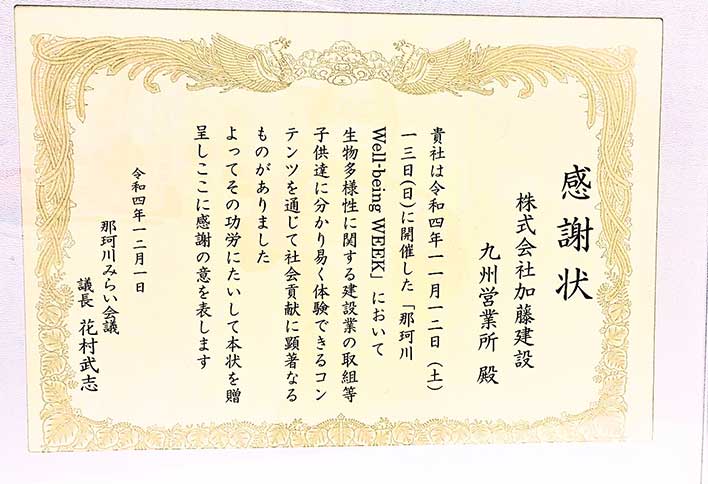 感謝状
株式会社加藤建設
九州営業所 殿
貴社は令和四年一一月一二日(土)
一三日(日)に開催した「那珂川
Well-being WEEK」において
生物多様性に関する建設業の取組等
子供達に分かり易く体験できるコン
テンツを通じて社会貢献に顕著なる
ものがありました
よってその功労にたいして本状を贈
呈しここに感謝の意を表します
令和四年一二月一日
那珂川みらい会議
議長 花村武志